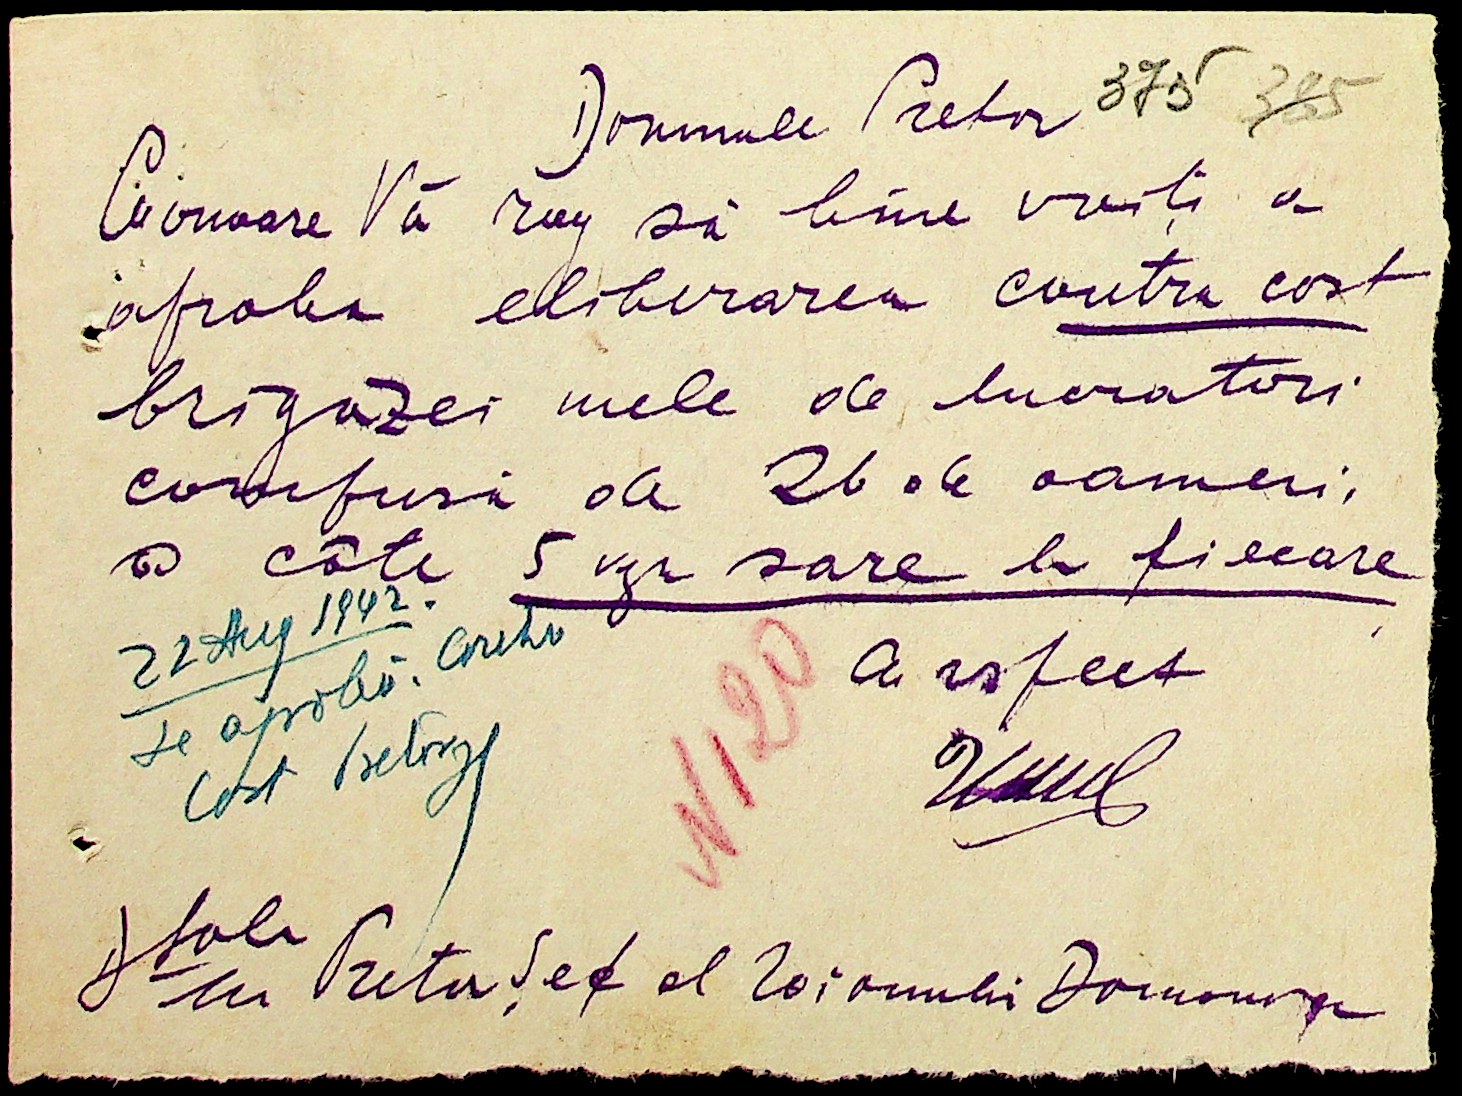 Domnule Pretor 375 385
Cu onoare Vă rog să bine vroiți a
aproba eliberarea contra cost
brigăzei mele de lucratori
compusă de 26 de oameni,
a câte 5 kgr sare la fiecare
22 Aug 1942.
se aprobă. Contra
cost Pretor
N 120
Cu respect
Dsale
Dlui Pretor Șef al Raionului Domanovca